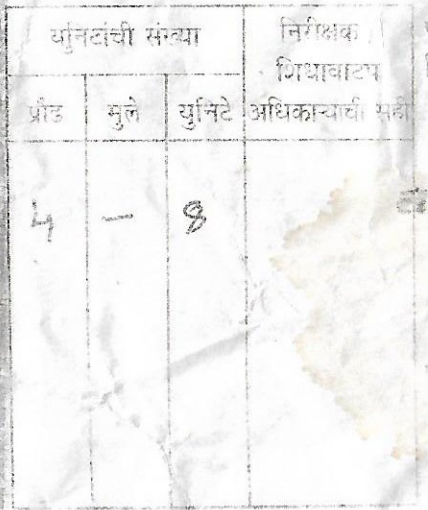 युनिटांची संख्या
निरीक्षक
शिधावाटप
अधिकाऱ्याची सही
प्रौढ मुले युनिटे
4 — 8